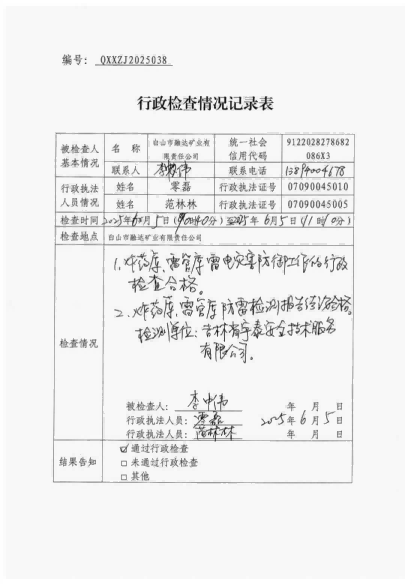 编号: QXXZJ2025038
行政检查情况记录表
被检查人基本情况 名称 白山市融达矿业有限责任公司 统一社会信用代码 9122028278682086X3
联系人 联系电话
行政执法人员情况 姓名 零磊 行政执法证号 07090045010
姓名 范林林 行政执法证号 07090045005
检查时间 2025年6月5日(9时40分)至2025年6月5日(11时0分)
检查地点 白山市融达矿业有限责任公司
检查情况
1、炸药库、雷管库雷电灾害防御工作的行政
检查合格。
2、炸药库、雷管库防雷检测报告
检测单位:吉林省宇泰安全技术服务
有限公司。
被检查人: 李中伟 年 月 日
行政执法人员: 零磊 2025年6月5日
行政执法人员: 范林林 年 月 日
结果告知
☑通过行政检查
□未通过行政检查
□其他